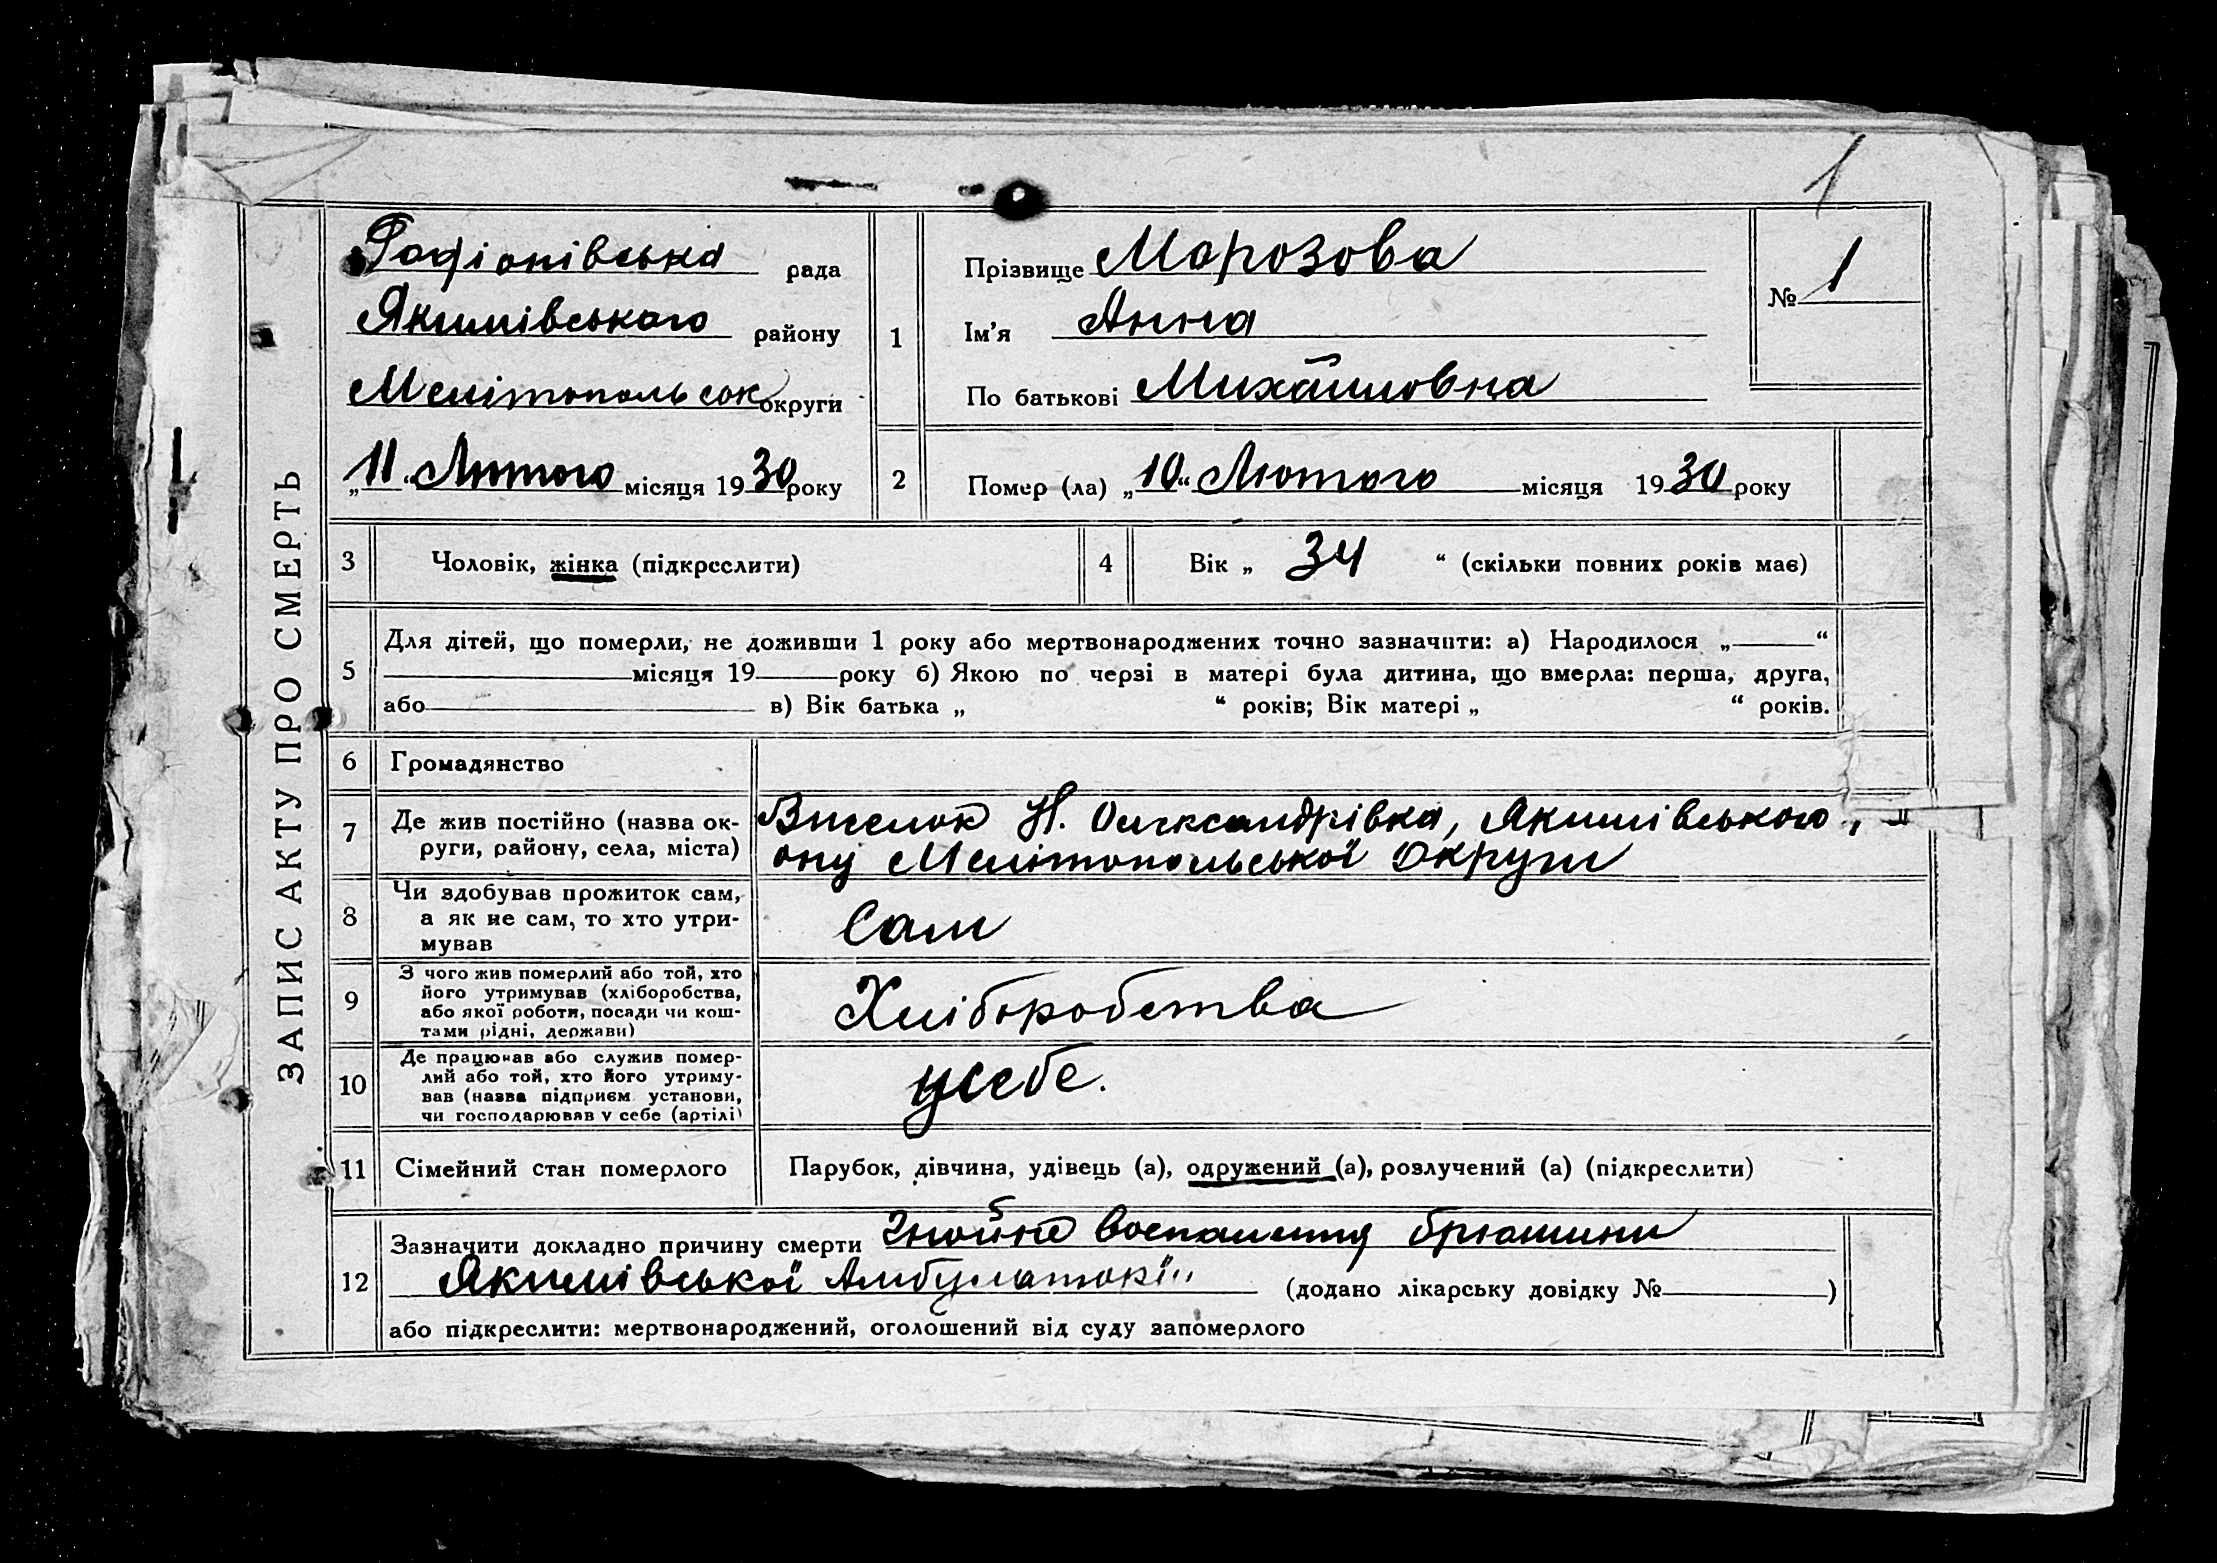 1
ЗАПИС АКТУ ПРО СМЕРТЬ
Радіонівська рада
Якимівського району
Мелітопольсок округи
„11“ Лютого місяця 1930 року
1
Прізвище Марозова
Ім'я Анна
По батькові Михайловна
№ 1
2
Помер (ла) „10“ Лютого місяця 1930 року
3 Чоловік, жінка (підкреслити)
4 Вік „ 34 “ (скільки повних років має)
5 Для дітей, що померли, не доживши 1 року або мертвонароджених точно зазначити: а) Народилося „ “
місяця 19 року б) Якою по черзі в матері була дитина, що вмерла: перша, друга,
або в) Вік батька „ “ років; Вік матері „ “ років.
6 Громадянство
7 Де жив постійно (назва ок-
руги, району, села, міста)
Виселок Н. Олександрівка, Якимівського
ону Мелітопольської Округи
8 Чи здобував прожиток сам,
а як не сам, то хто утри-
мував
Сам
9 З чого жив померлий або той, хто
його утримував (хліборобства,
або якої роботи, посади чи кош-
тами рідні, держави)
Хліборобства
10 Де працював або служив помер-
лий або той, хто його утриму-
вав (назва підприєм. установи,
чи господарював у себе (артілі)
усебе.
11 Сімейний стан померлого
Парубок, дівчина, удівець (а), одружений (а), розлучений (а) (підкреслити)
12 Зазначити докладно причину смерти Гнойне воспалення брюшини
Якимівської Амбулаторії (додано лікарську довідку № )
або підкреслити: мертвонароджений, оголошений від суду запомерлого